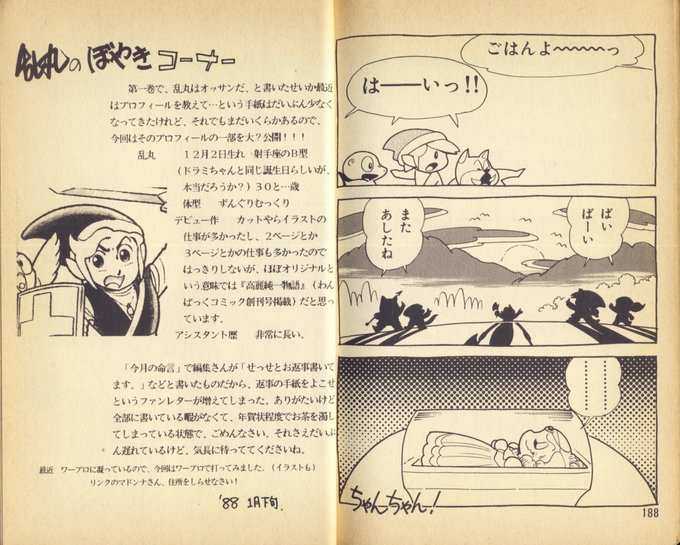 乱丸のぼやきコーナー
第一巻で、乱丸はオッサンだ、と書いたせいか最近
はプロフィールを教えて…という手紙はだいぶん少なく
なってきたけれど、それでもまだいくらかあるので、
今回はそのプロフィールの一部を大？公開！！！
乱丸　１２月２日生れ　射手座のＢ型
（ドラミちゃんと同じ誕生日らしいが、
本当だろうか？）３０と…歳
体型　ずんぐりむっくり
デビュー作　カットやらイラストの
仕事が多かったし、２ページとか
３ページとかの仕事も多かったので
はっきりしないが、ほぼオリジナルと
いう意味では『高麗純一物語』（わん
ぱっくコミック創刊号掲載）だと思っ
ています。
アシスタント歴　非常に長い。
「今月の命言」で編集さんが「せっせとお返事書いて
ます。」などと書いたものだから、返事の手紙をよこせ
というファンレターが増えてしまった。ありがたいけど
全部に書いている暇がなくて、年賀状程度でお茶を濁し
てしまっている状態で、ごめんなさい。それさえだいぶ
ん遅れているけど、気長に待っててくださいね。
最近　ワープロに凝っているので、今回はワープロで打ってみました。（イラストも）
リンクのマドンナさん、住所をしらせなさい！
'88 1月下旬
ごはんよ〜〜〜〜〜っ
は——いっ!!
ばい
ばーい
また
あしたね
…………
…………
ちゃんちゃん！
188